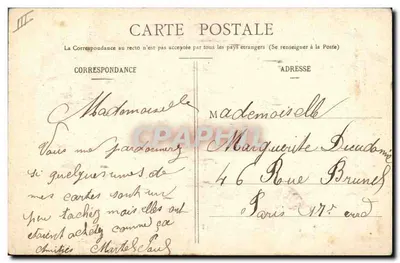 III
CARTE POSTALE
La Correspondance au recto n'est pas acceptée par tous les pays étrangers (Se renseigner à la Poste)
CORRESPONDANCE
ADRESSE
Mademoiselle
Vous me pardonnerez
si quelques unes de
mes cartes sont un
peu tachez mais elles ont
étaient achetez comme ça
Amitiés
M ademoiselle
Marguerite Dieudonné
46 Rue Brunel
Paris 17e